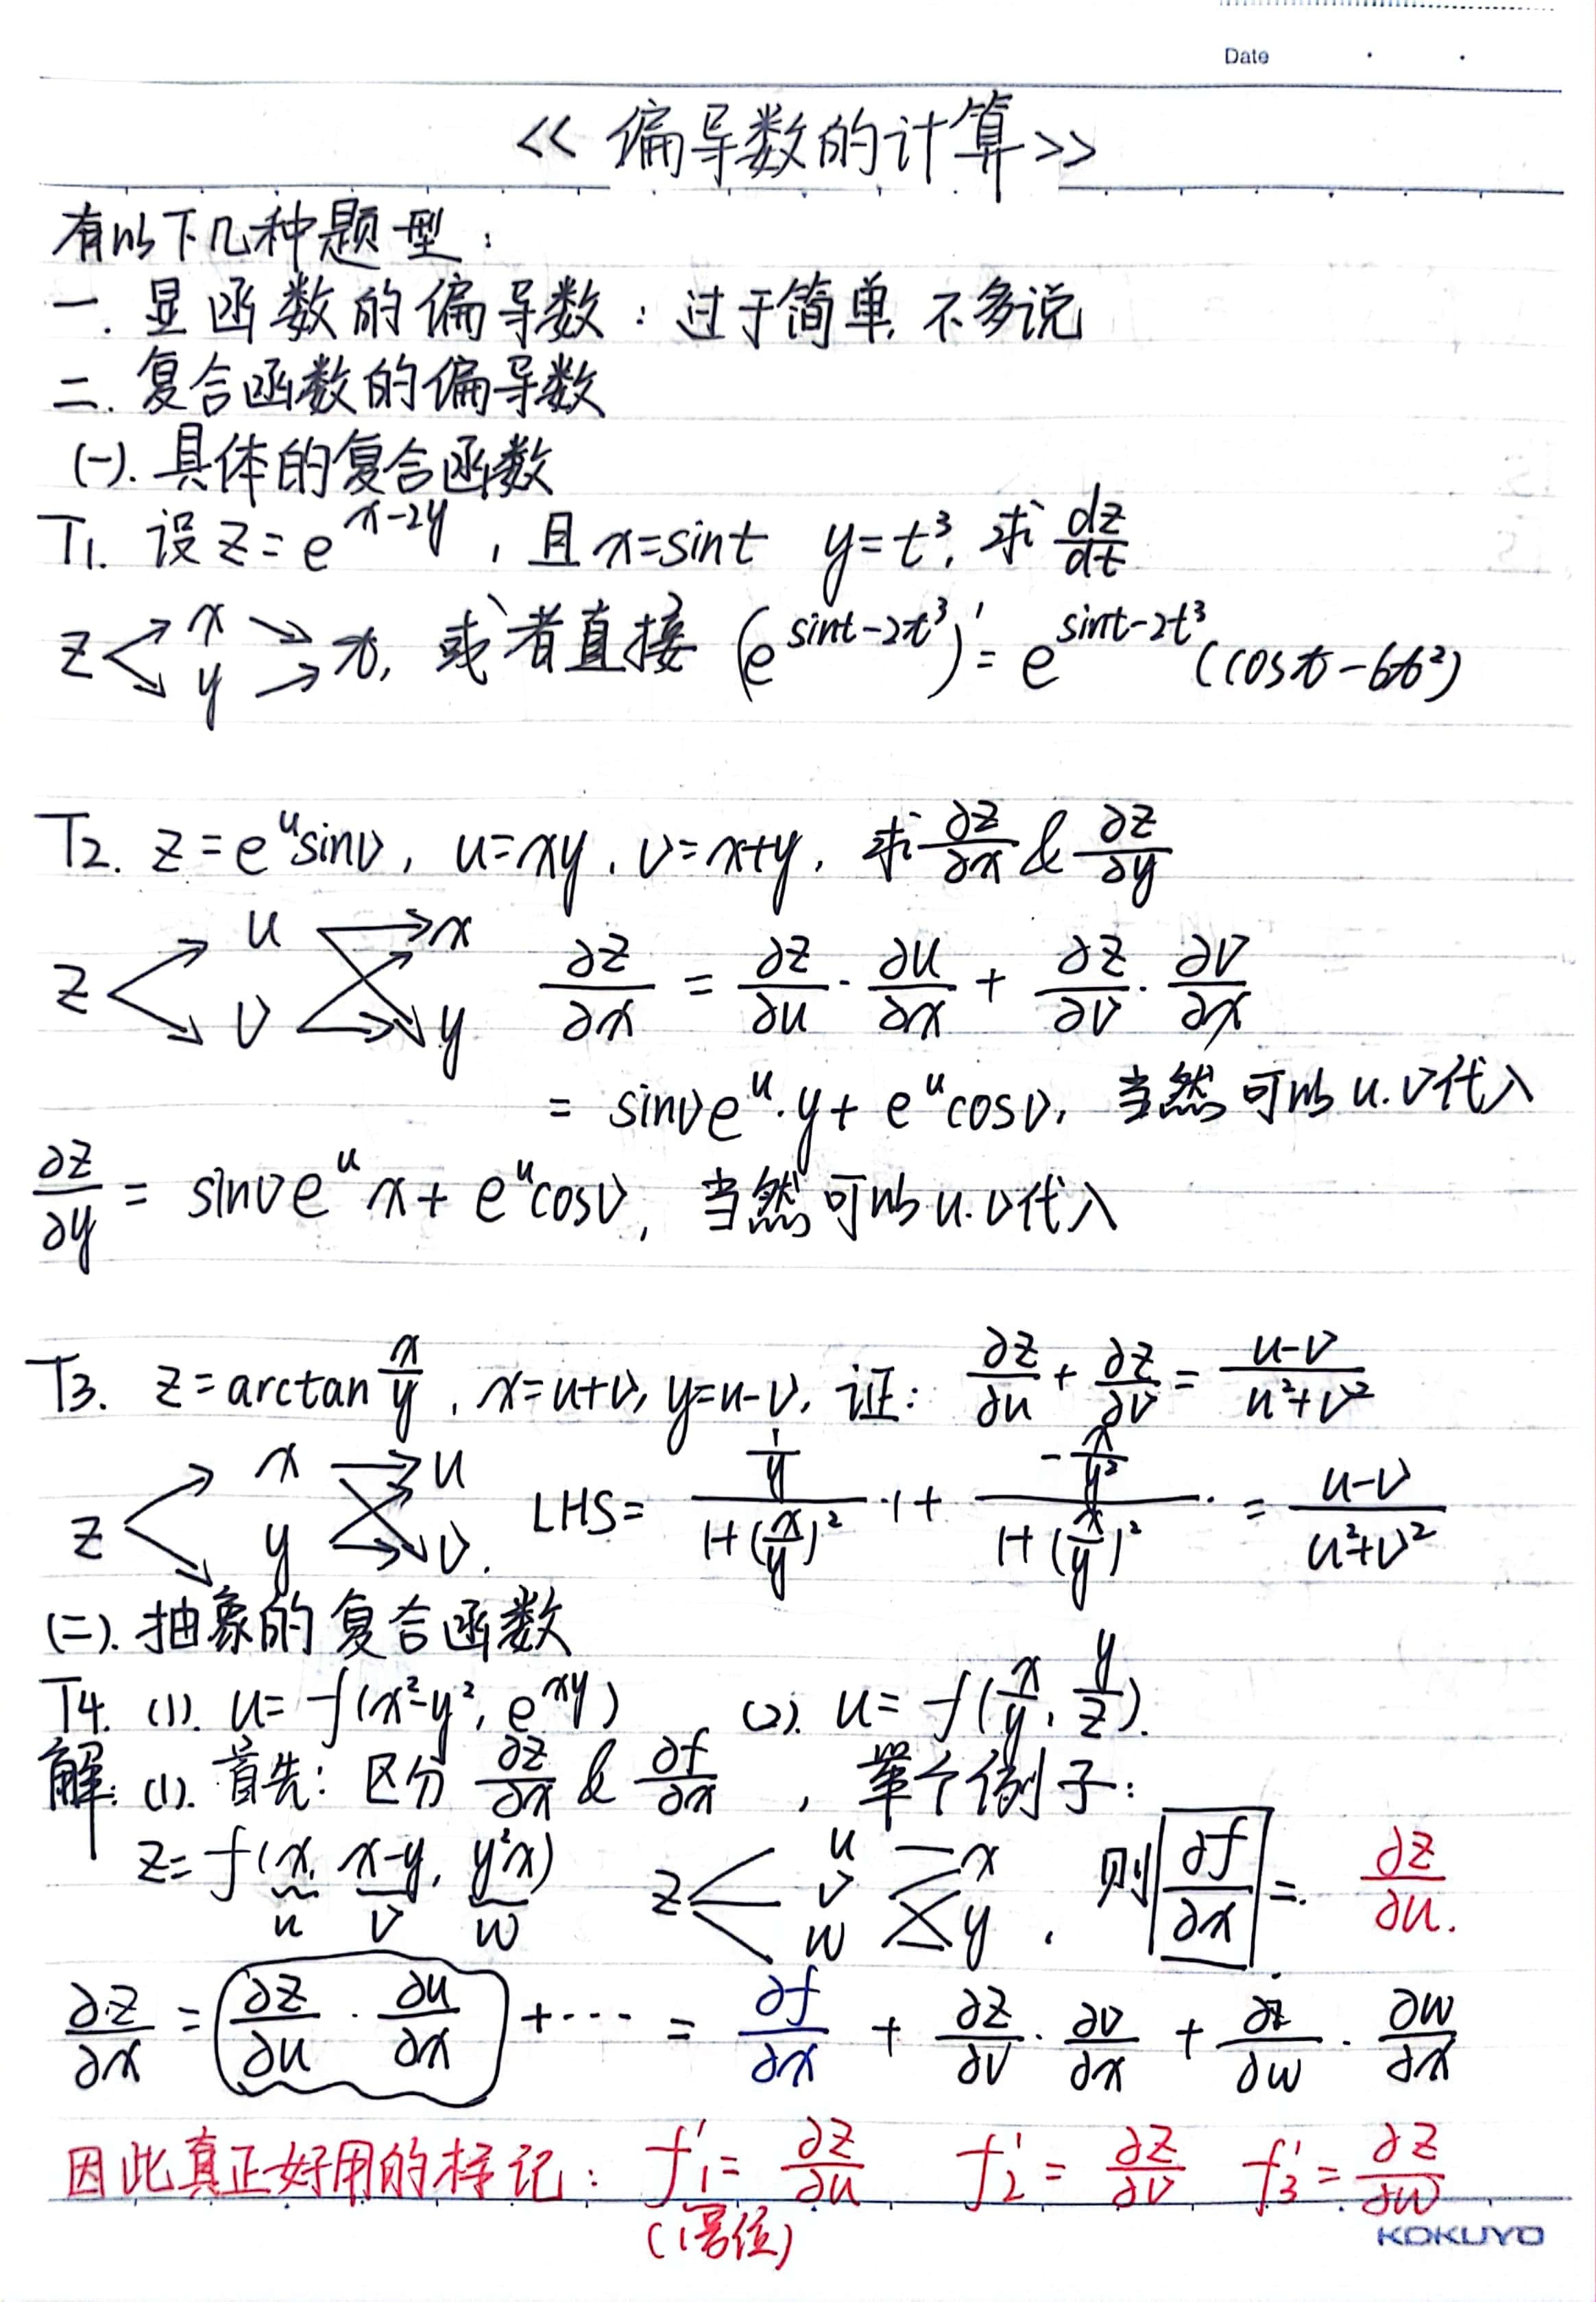 Date
<<偏导数的计算>>
有以下几种题型:
一. 显函数的偏导数: 过于简单, 不多说
二. 复合函数的偏导数
(一). 具体的复合函数
T1. 设 z = e^{x-2y}, 且 x=sint y=t³, 求 dz/dt
z < x y > t, 或者直接 (e^{sint-2t³})' = e^{sint-2t³}(cost-6t²)
T2. z = e^u sinv, u=xy, v=x+y, 求 ∂z/∂x & ∂z/∂y
z u v x y ∂z/∂x = ∂z/∂u · ∂u/∂x + ∂z/∂v · ∂v/∂x
= sinv e^u · y + e^u cosv, 当然可以 u.v代入
∂z/∂y = sinv e^u x + e^u cosv, 当然可以 u.v代入
T3. z = arctan x/y, x=u+v, y=u-v, 证: ∂z/∂u + ∂z/∂v = (u-v)/(u²+v²)
z x y u v. LHS = (1/y)/(1+(x/y)²) ·1 + (-x/y²)/(1+(x/y)²) · = (u-v)/(u²+v²)
(二). 抽象的复合函数
T4. (1). u = f(x²-y², e^{xy}) (2). u = f(x/y, y/z).
解: (1). 首先: 区分 ∂z/∂x & ∂f/∂x, 举个例子:
z = f(x, x-y, y²x) z u v w x y. 则 ∂f/∂x = ∂z/∂u.
u v w
∂z/∂x = ∂z/∂u · ∂u/∂x + ··· = ∂f/∂x + ∂z/∂v · ∂v/∂x + ∂z/∂w · ∂w/∂x
因此真正好用的标记: f₁' = ∂z/∂u f₂' = ∂z/∂v f₃' = ∂z/∂w
(1号位)
KOKUYO